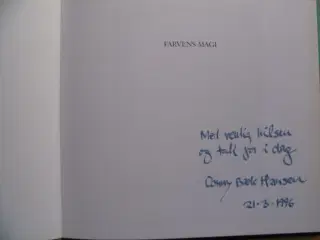 FARVENS MAGI
Med venlig hilsen
og tak for i dag
Conny Bæk Hansen
21-3-1996